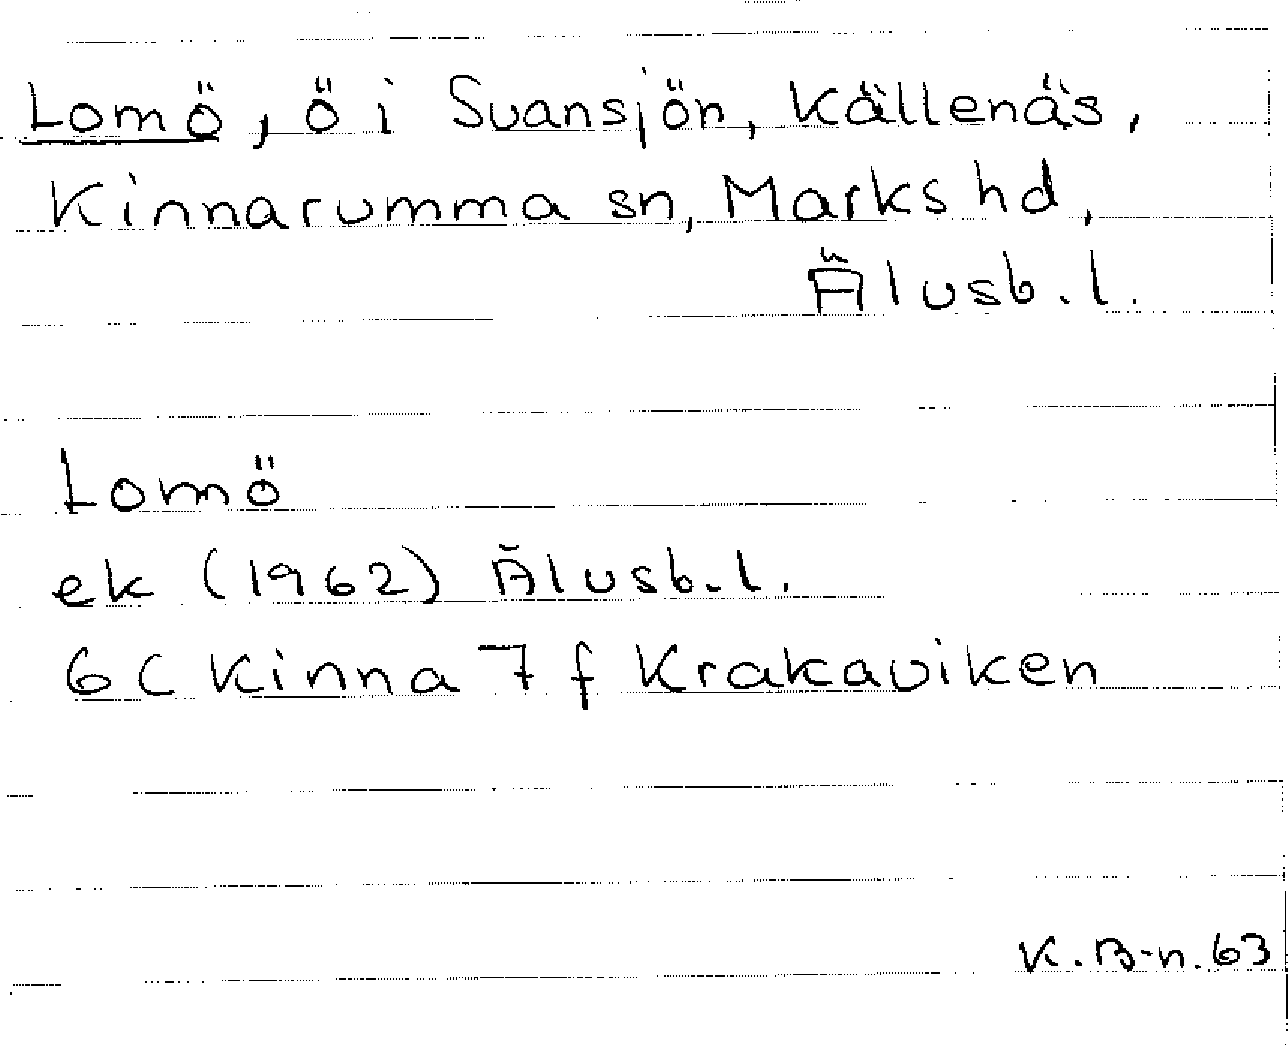 Lomö, ö i Svansjön, Källenäs,
Kinnarumma sn, Marks hd,
Älvsb. l.
Lomö
ek (1962) Älvsb. l.
6 C Kinna 7 f Krakaviken
K. B-n. 63